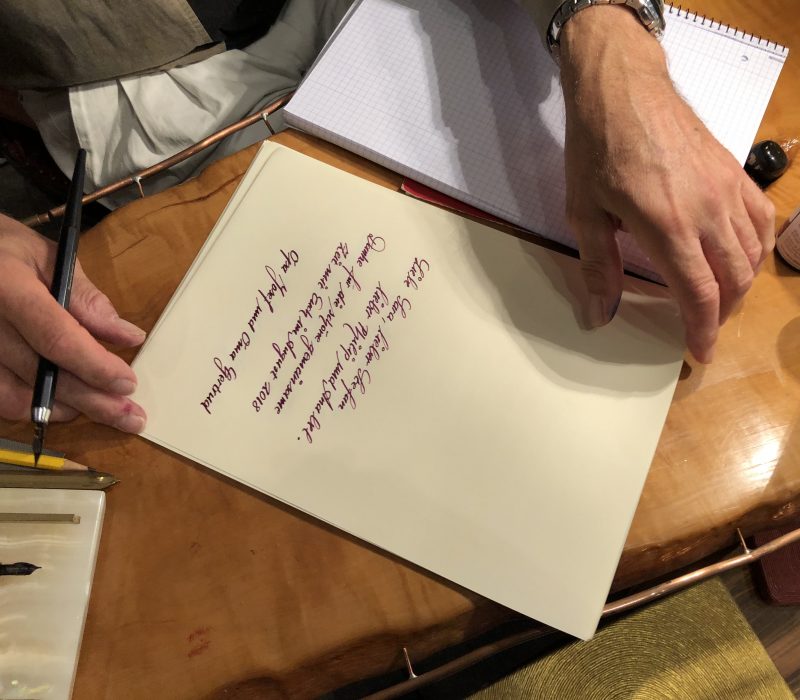 Liebe Lea, Lieber Stefan
Lieber Philip und Anabel.
Danke für die schöne gemeinsame
Zeit mit Euch, im August 2018
Opa Josef und Oma Gertrud